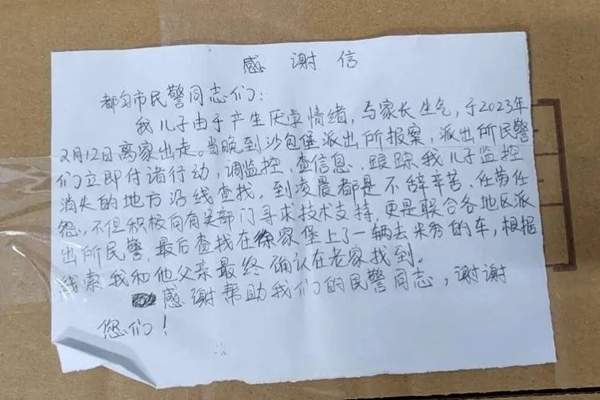 感谢信
都匀市民警同志们：
我儿子由于产生厌学情绪，与家长生气，于2023年
2月12日离家出走。当晚到沙包堡派出所报案，派出所民警
们立即付诸行动，调监控、查信息、跟踪我儿子监控
消失的地方沿线查找，到凌晨都是不辞辛苦、任劳任
怨，不但积极向有关部门寻求技术支持，更是联合各地区派
出所民警，最后查找在徐家堡上了一辆去来的车，根据
线索我和他父亲最终确认在老家找到。
感谢帮助我们的民警同志，谢谢
您们！